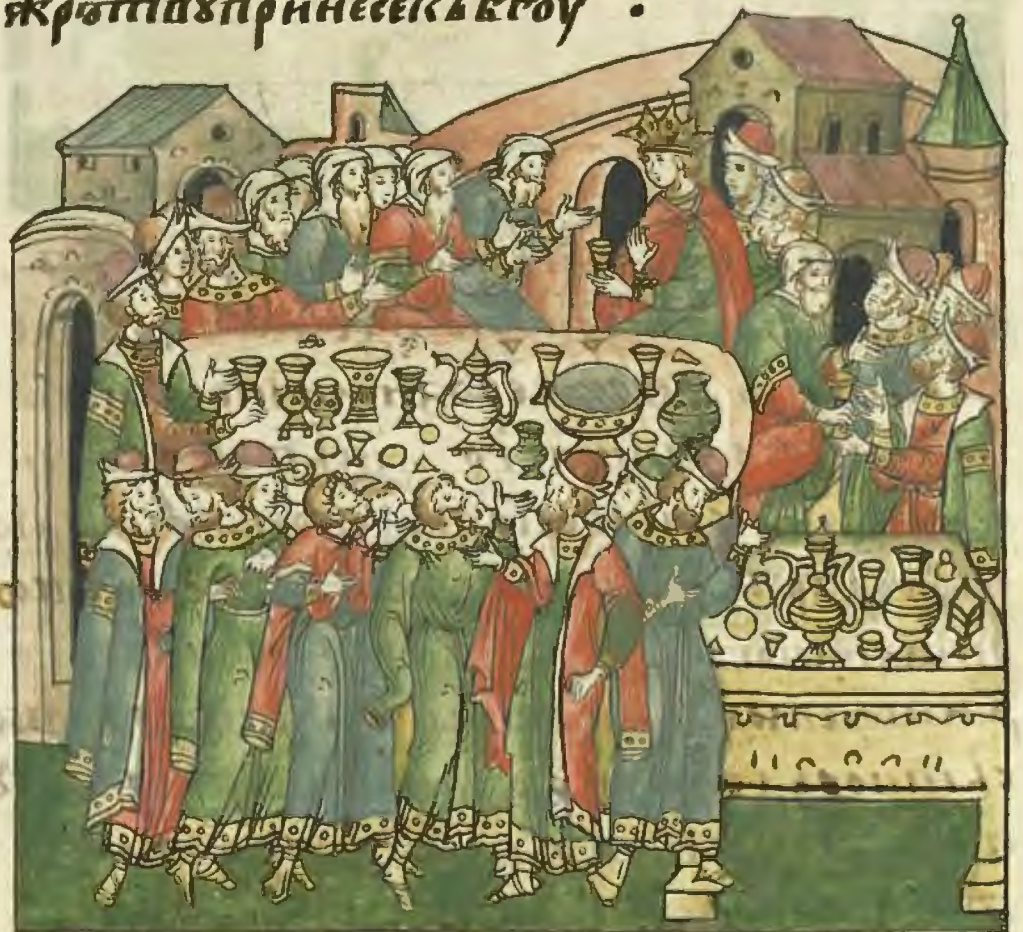 жрътвꙋпринесекъбгоу .